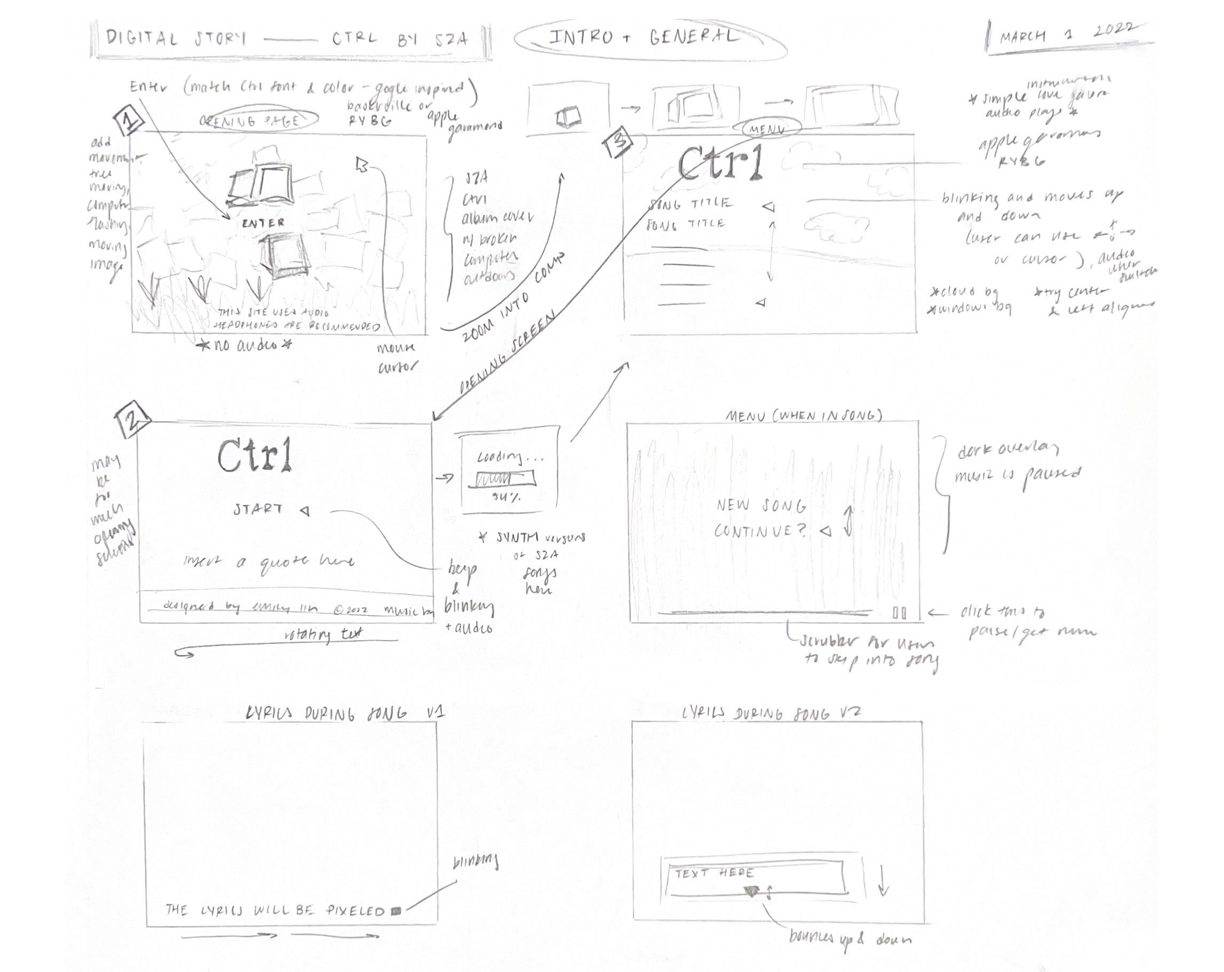 DIGITAL STORY — CTRL BY SZA
INTRO + GENERAL
MARCH 1 2022
Enter (match Ctrl font & color - google inspired)
baskerville or apple garamond
RYBG
1
OPENING PAGE
add
movement
tree
moving,
computer
floating
moving
image
ENTER
THIS SITE USES AUDIO
HEADPHONES ARE RECOMMENDED
*no audio*
mouse
cursor
SZA
Ctrl
album cover
w/ broken
computer
outdoors
ZOOM INTO COMP
OPENING SCREEN
3
MENU
Ctrl
SONG TITLE
SONG TITLE
instrumental
*simple love galore
audio plays*
apple garamond
RYBG
blinking and moves up
and down
(user can use
or cursor), audio
when switch
*cloud bg
*windows bg
*try center
& left aligned
2
may
be
too
much
opening
screens
Ctrl
START
insert a quote here
designed by emily lim ©2022 music by
rotating text
beep
&
blinking
+ audio
Loading...
94%
* SYNTH versions
of SZA
songs
here
MENU (WHEN IN SONG)
NEW SONG
CONTINUE?
dark overlay
music is paused
click this to
pause/get menu
scrubber for users
to skip into song
LYRICS DURING SONG V1
THE LYRICS WILL BE PIXELED
blinking
LYRICS DURING SONG V2
TEXT HERE
bounces up & down